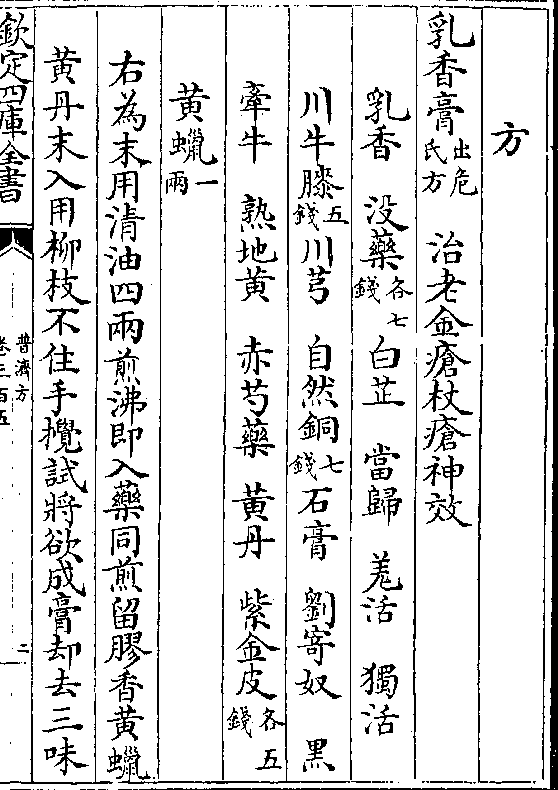 方
乳香膏出危氏方 治老金瘡杖瘡神效
乳香 没藥各七錢 白芷 當歸 羗活 獨活
川牛膝五錢 川芎 自然銅七錢 石膏 劉寄奴 黑
牽牛 熟地黄 赤芍藥 黄丹 紫金皮各五錢
黄蠟一兩
右為末用清油四兩煎沸即入藥同煎留膠香黄蠟
黄丹末入用柳枝不住手攪試將欲成膏却去三味
欽定四庫全書
普濟方
卷三百五
二